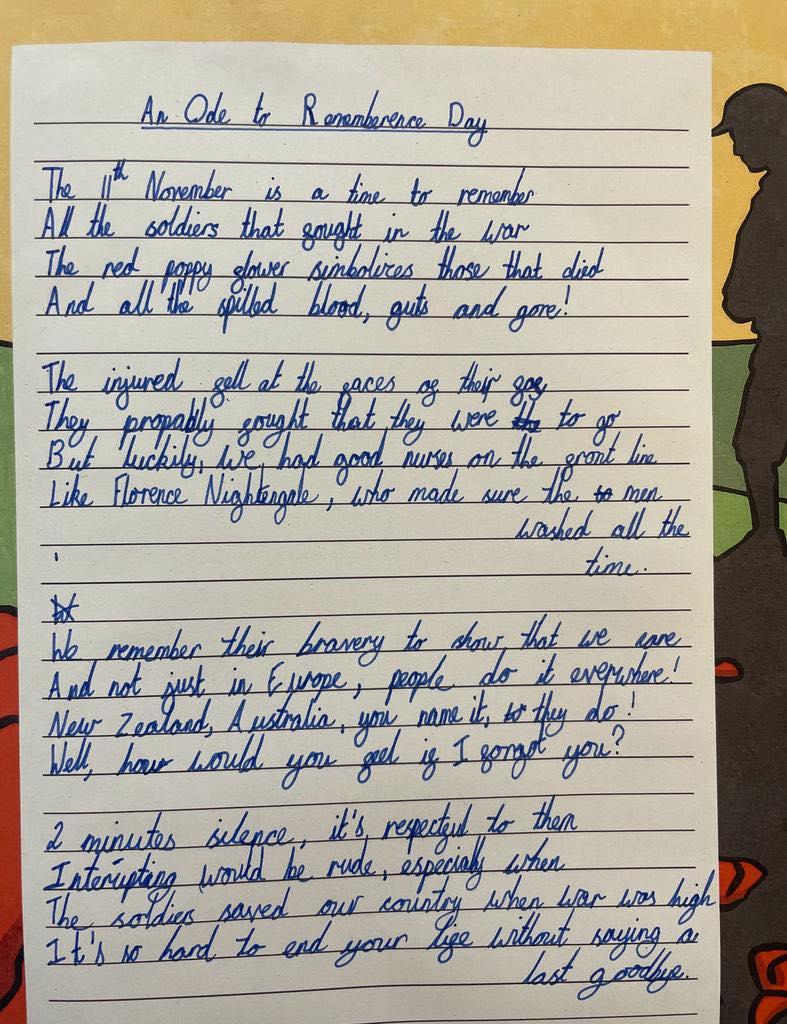 An Ode to Rememberence Day
The 11th November is a time to remember
All the soldiers that fought in the war
The red poppy flower simbolizes those that died
And all the spilled blood, guts and gore!
The injured fell at the faces of their foe
They propably fought that they were to go
But luckily, we had good nurses on the front line
Like Florence Nightengale, who made sure the men
washed all the
time.
We remember their bravery to show that we care
And not just in Europe, people do it everwhere!
New Zealand, Australia, you name it, they do!
Well, how would you feel if I forgot you?
2 minutes silence, it's respectful to them
Interupting would be rude, especially when
The soldiers saved our country when war was high
It's so hard to end your life without saying a
last goodbye.